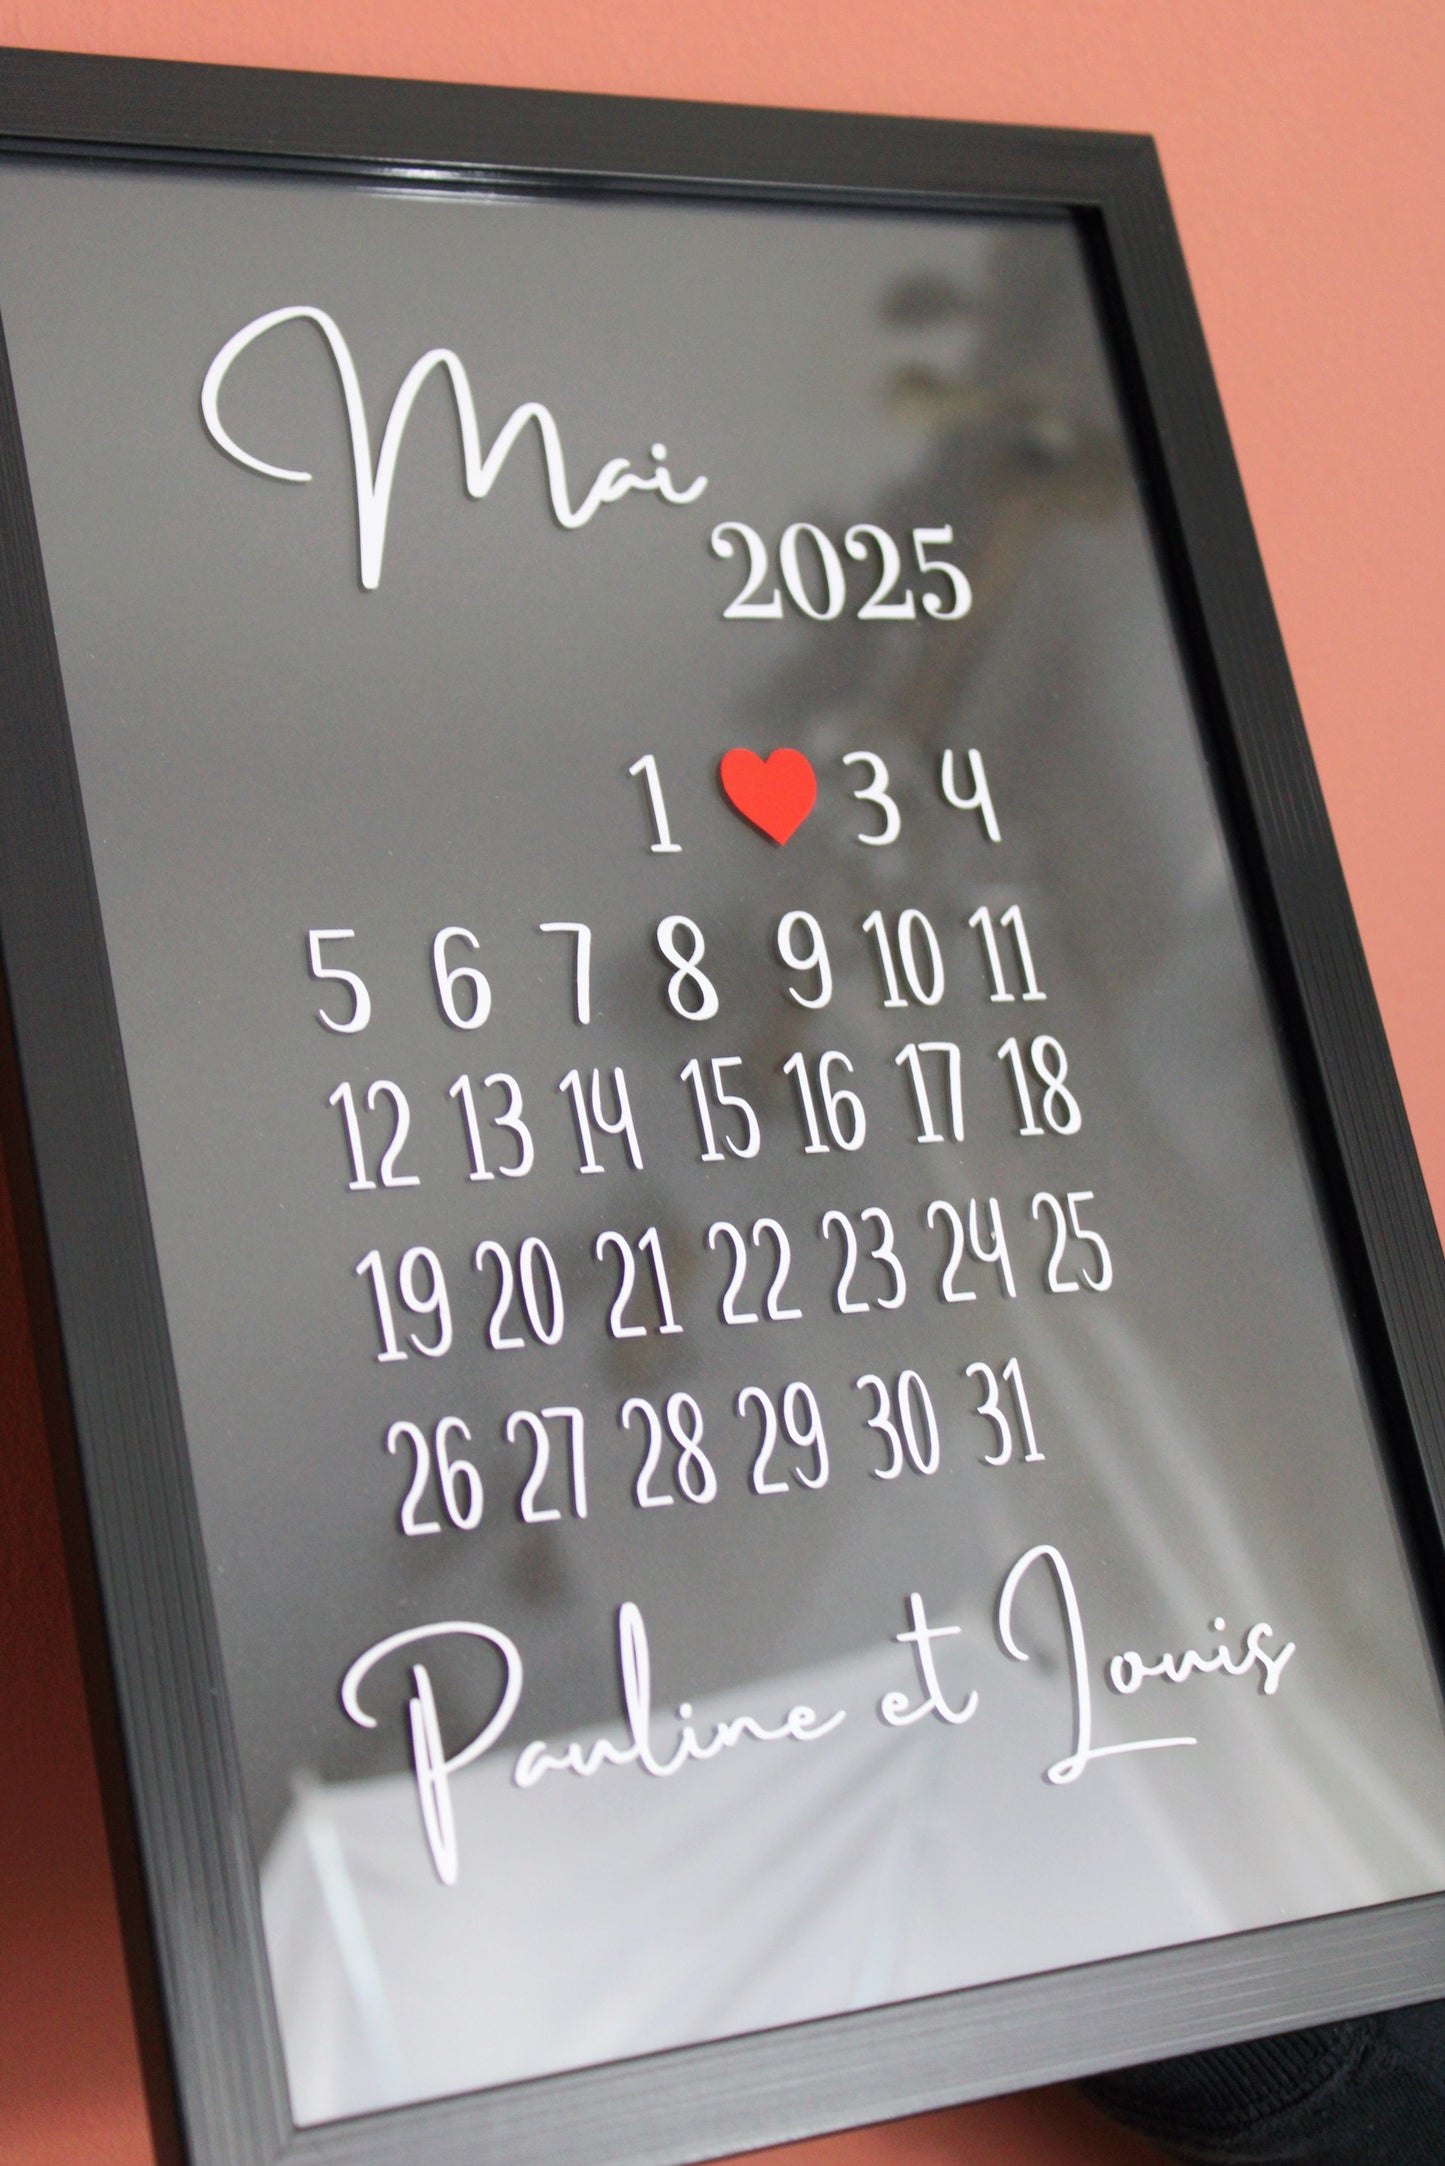 Mai
2025
1 3 4
5 6 7 8 9 10 11
12 13 14 15 16 17 18
19 20 21 22 23 24 25
26 27 28 29 30 31
Pauline et Louis